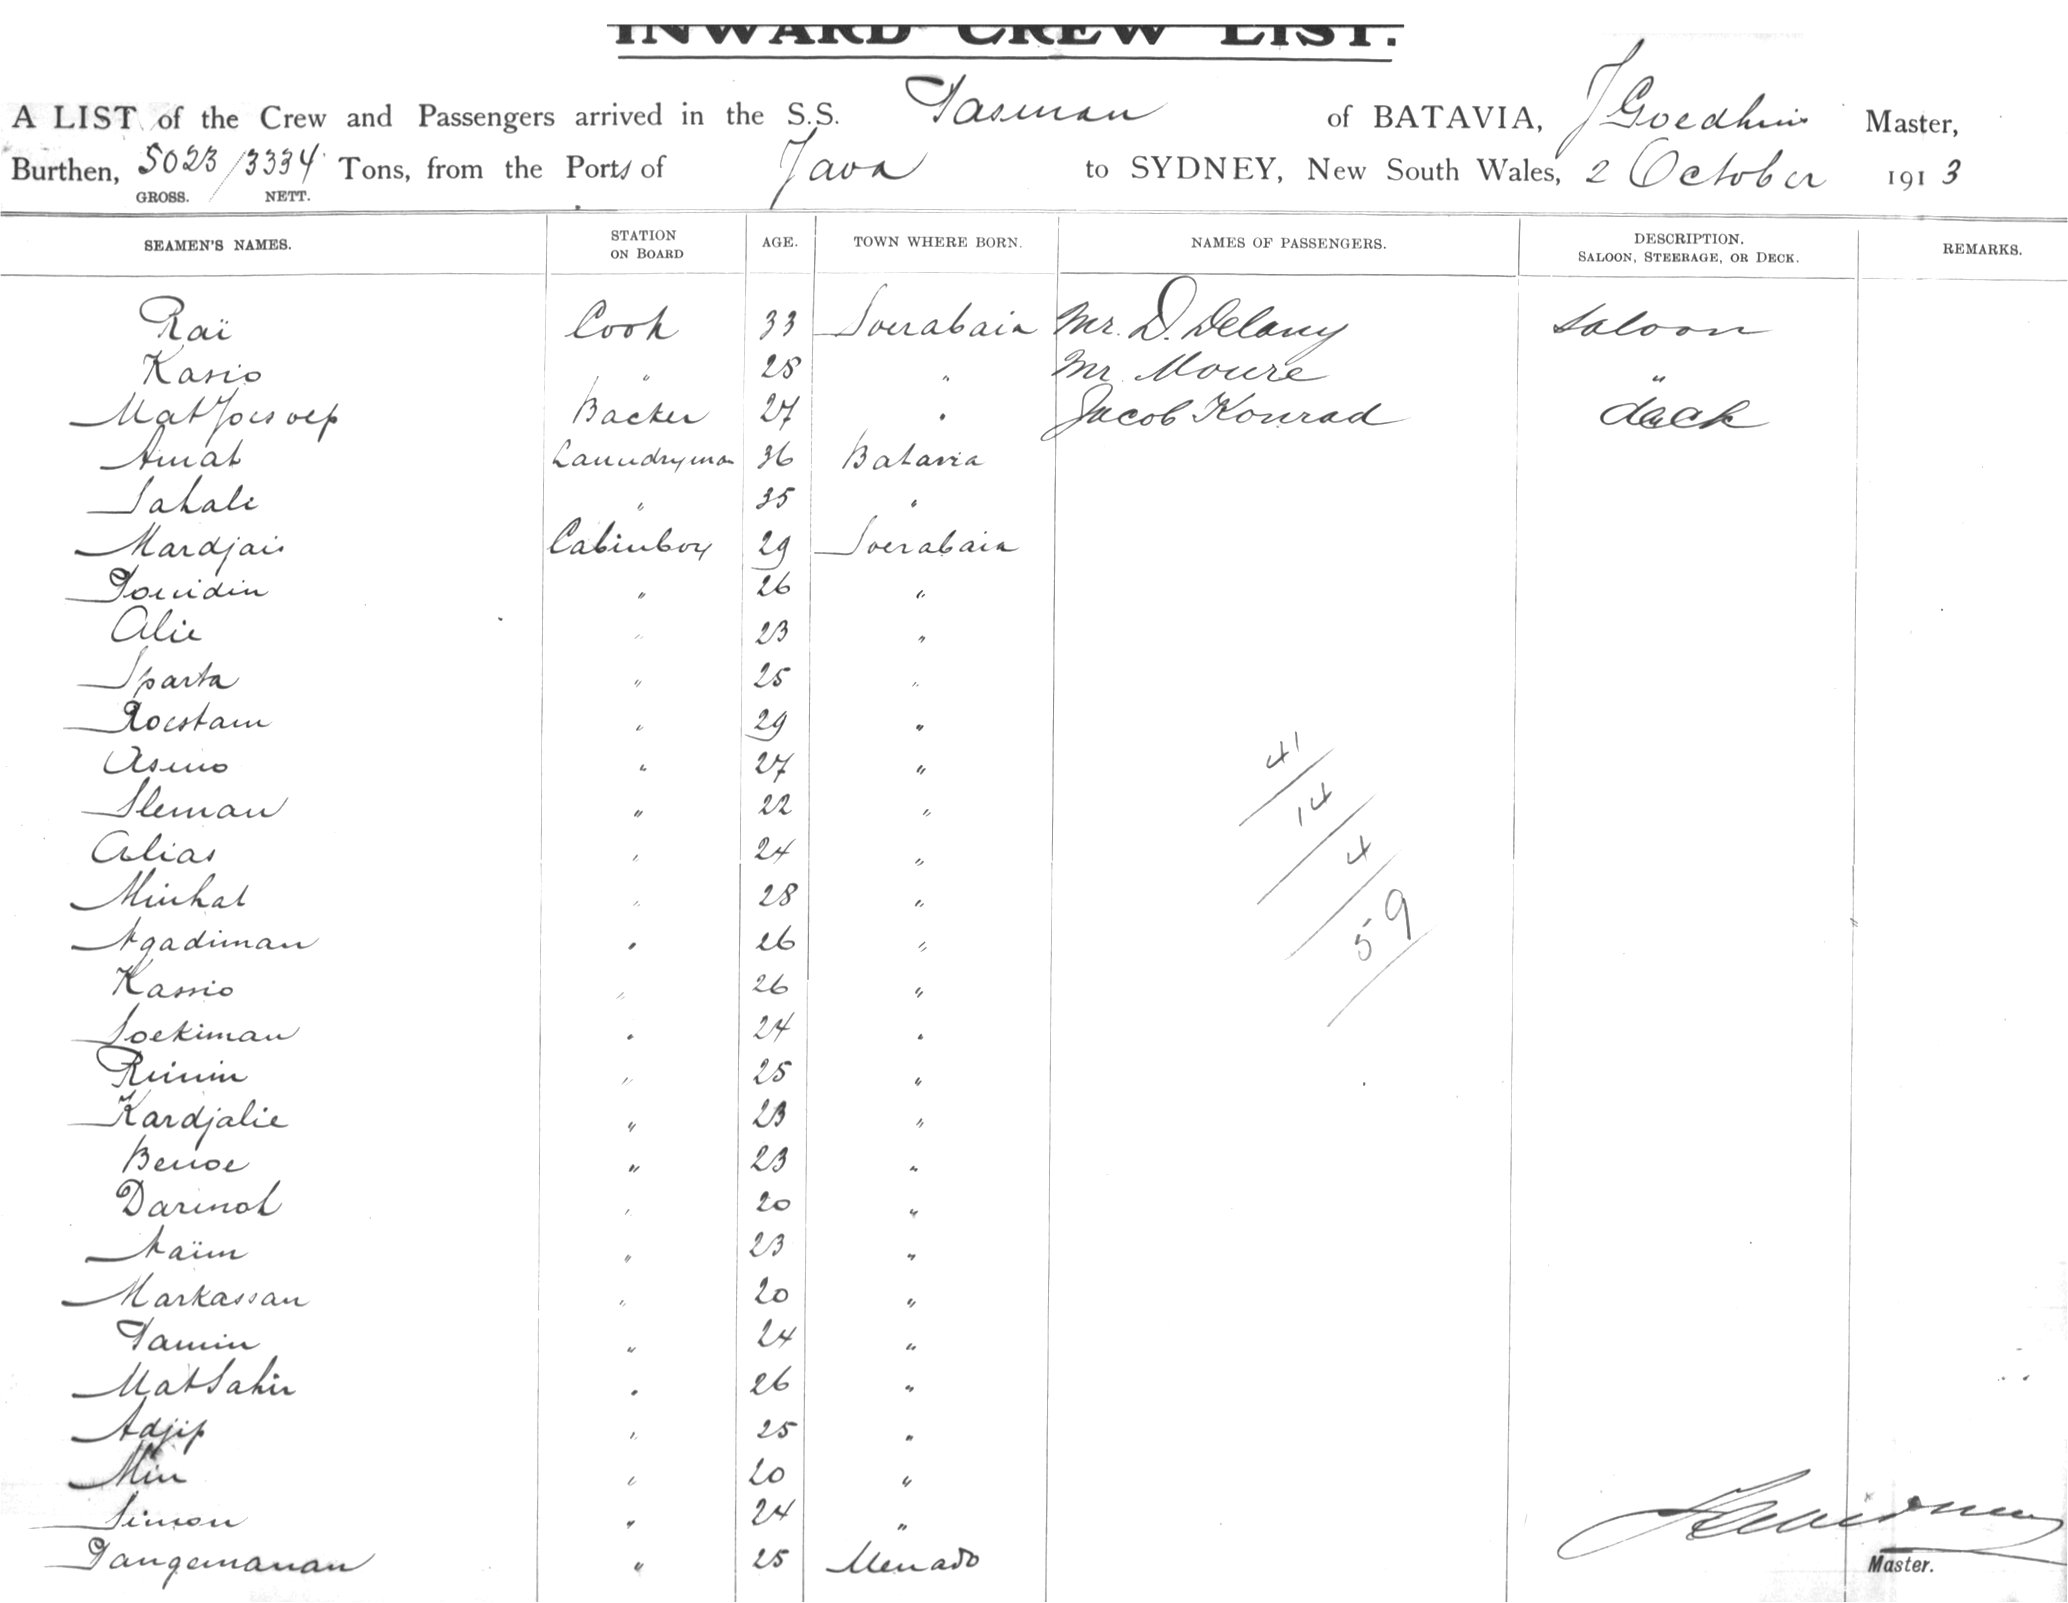 INWARD CREW LIST.
A LIST of the Crew and Passengers arrived in the S.S. Tasman of BATAVIA, J Goedhui Master,
Burthen, 5023/3334 Tons, from the Ports of Java to SYDNEY, New South Wales, 2 October 1913
GROSS. NETT.
SEAMEN'S NAMES. STATION ON BOARD AGE. TOWN WHERE BORN. NAMES OF PASSENGERS. DESCRIPTION. SALOON, STEERAGE, OR DECK. REMARKS.
Raï Cook 33 Soerabaia Mr. D. Delany Saloon
Kasio " 28 " Mr. Moure "
Mat Joesoep Backer 27 " Jacob Konrad deck
Amat Laundryman 36 Batavia
Sahali " 35 "
Mardjais Cabinboy 29 Soerabaia
" 26 "
Alie " 23 "
Sparta " 25 "
Roestam " 29 "
Asmo " 27 "
Sleman " 22 "
Alias " 24 "
Minhat " 28 "
Ngadiman " 26 "
Kassio " 26 "
Soekiman " 24 "
" 25 "
Kardjalie " 23 "
Benoe " 23 "
Darmoh " 20 "
Naïm " 23 "
Markassan " 20 "
Tamin " 24 "
Mat Sahir " 26 "
Adjip " 25 "
Min " 20 "
Simon " 24 "
Tangemanan " 25 Menado
41
14
4
59
Master.